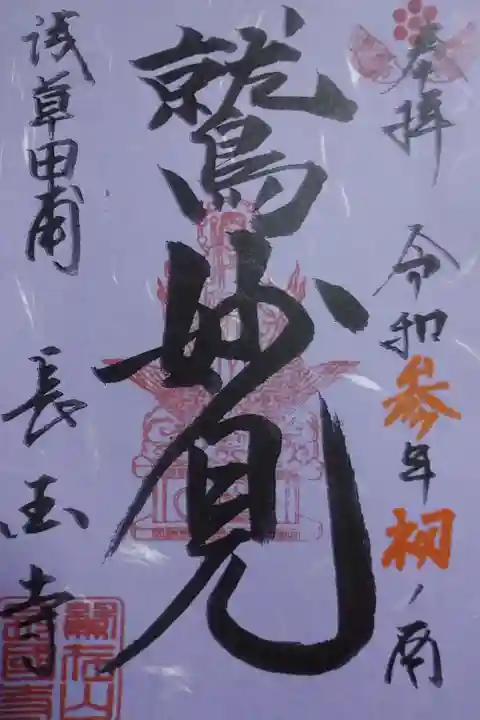 奉拝 令和参年初ノ酉
鷲妙見
浅草田甫 長国寺